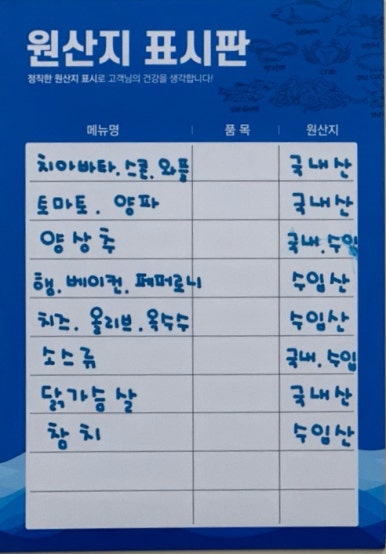 원산지 표시판
정직한 원산지 표시로 고객님의 건강을 생각합니다!
메뉴명 품 목 원산지
치아바타. 스콘. 와플 국내산
토마토. 양파 국내산
양상추 국내.수입
햄. 베이컨. 페퍼로니 수입산
치즈. 올리브. 옥수수 수입산
소스류 국내.수입
닭가슴살 국내산
참치 수입산